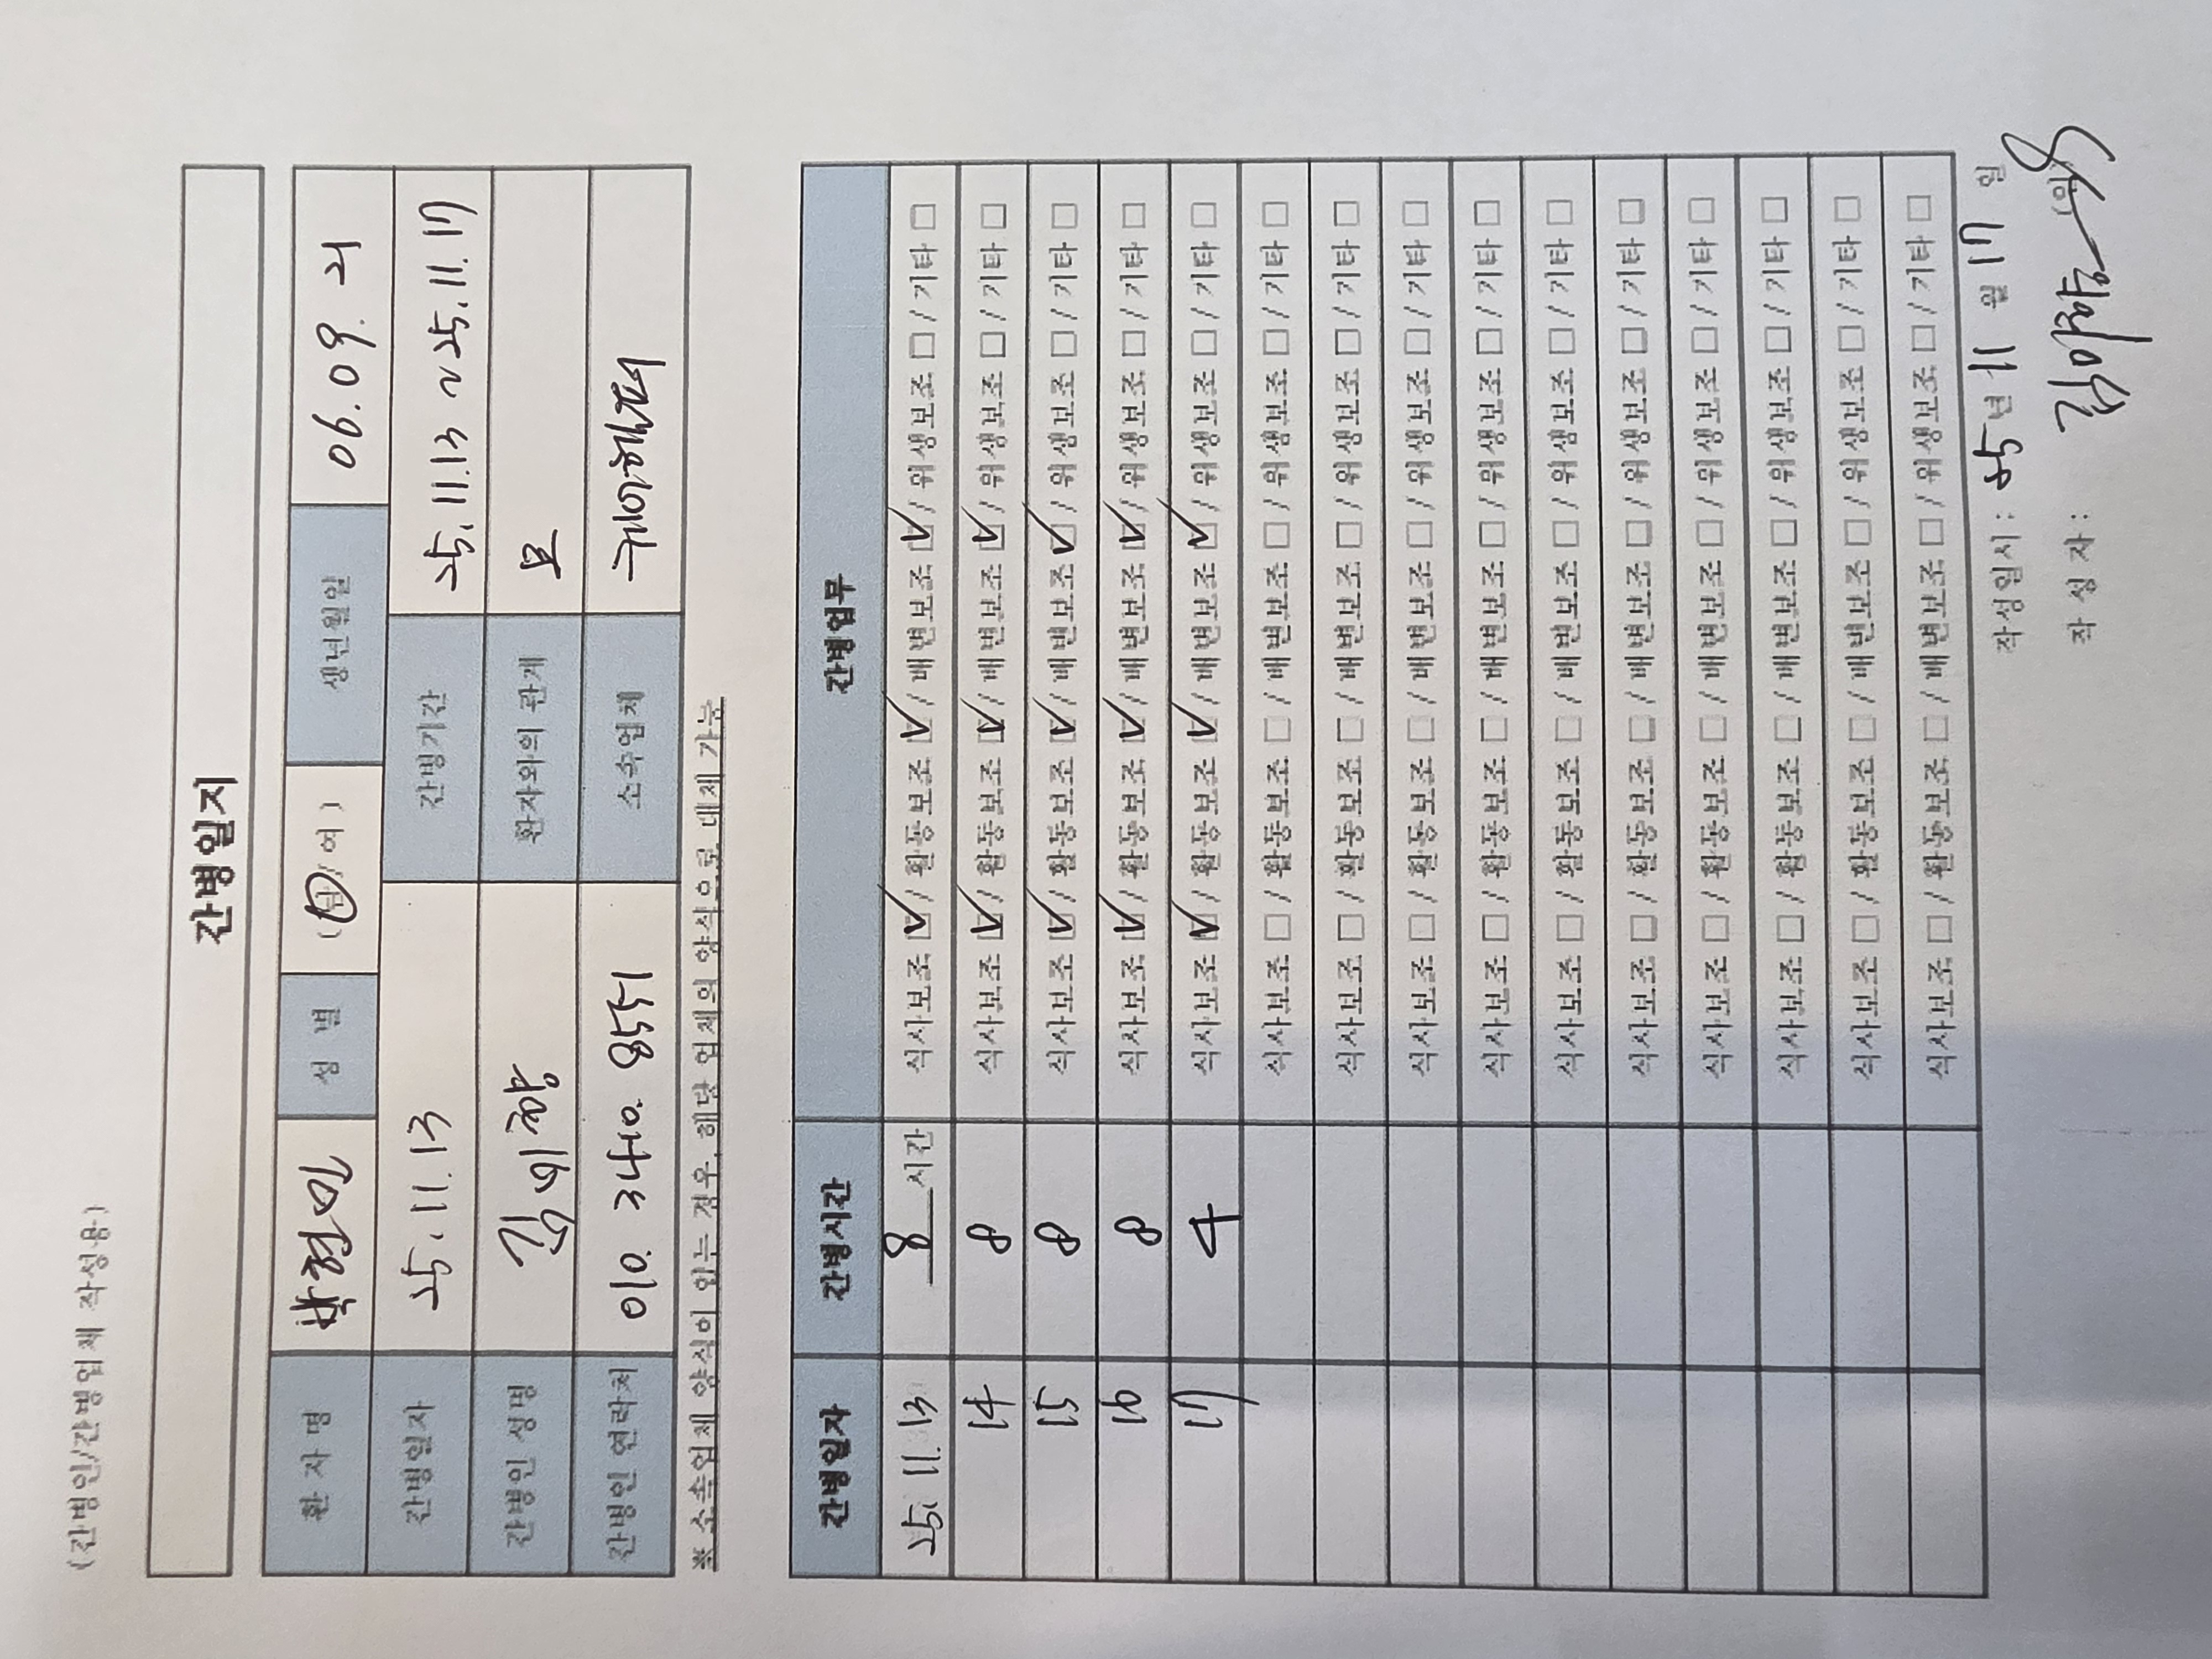 (간병인/간병업체 작성용)
간병일지
환 자 명 박현민 성 별 (남/여) 생년월일 06. 09. 21
간병일자 25. 11. 13 간병기간 25. 11. 13 ~ 25. 11. 17
간병인 성명 환자와의 관계 모
간병인 연락처 010. 3440. 8551 소속업체 케어헬퍼
※ 소속업체 양식이 있는 경우, 해당 업체의 양식으로 대체 가능
간병일자 간병시간 간병업무
25. 11. 13 8 시간 식사보조 ☑ / 활동보조 ☑ / 배변보조 ☑ / 위생보조 □ / 기타 □
14 8 식사보조 ☑ / 활동보조 ☑ / 배변보조 ☑ / 위생보조 □ / 기타 □
15 8 식사보조 ☑ / 활동보조 ☑ / 배변보조 ☑ / 위생보조 □ / 기타 □
16 8 식사보조 ☑ / 활동보조 ☑ / 배변보조 ☑ / 위생보조 □ / 기타 □
17 4 식사보조 ☑ / 활동보조 ☑ / 배변보조 ☑ / 위생보조 □ / 기타 □
식사보조 □ / 활동보조 □ / 배변보조 □ / 위생보조 □ / 기타 □
식사보조 □ / 활동보조 □ / 배변보조 □ / 위생보조 □ / 기타 □
식사보조 □ / 활동보조 □ / 배변보조 □ / 위생보조 □ / 기타 □
식사보조 □ / 활동보조 □ / 배변보조 □ / 위생보조 □ / 기타 □
식사보조 □ / 활동보조 □ / 배변보조 □ / 위생보조 □ / 기타 □
식사보조 □ / 활동보조 □ / 배변보조 □ / 위생보조 □ / 기타 □
식사보조 □ / 활동보조 □ / 배변보조 □ / 위생보조 □ / 기타 □
식사보조 □ / 활동보조 □ / 배변보조 □ / 위생보조 □ / 기타 □
식사보조 □ / 활동보조 □ / 배변보조 □ / 위생보조 □ / 기타 □
식사보조 □ / 활동보조 □ / 배변보조 □ / 위생보조 □ / 기타 □
작성일시 : 25 년 11 월 17 일
작 성 자 : (인)